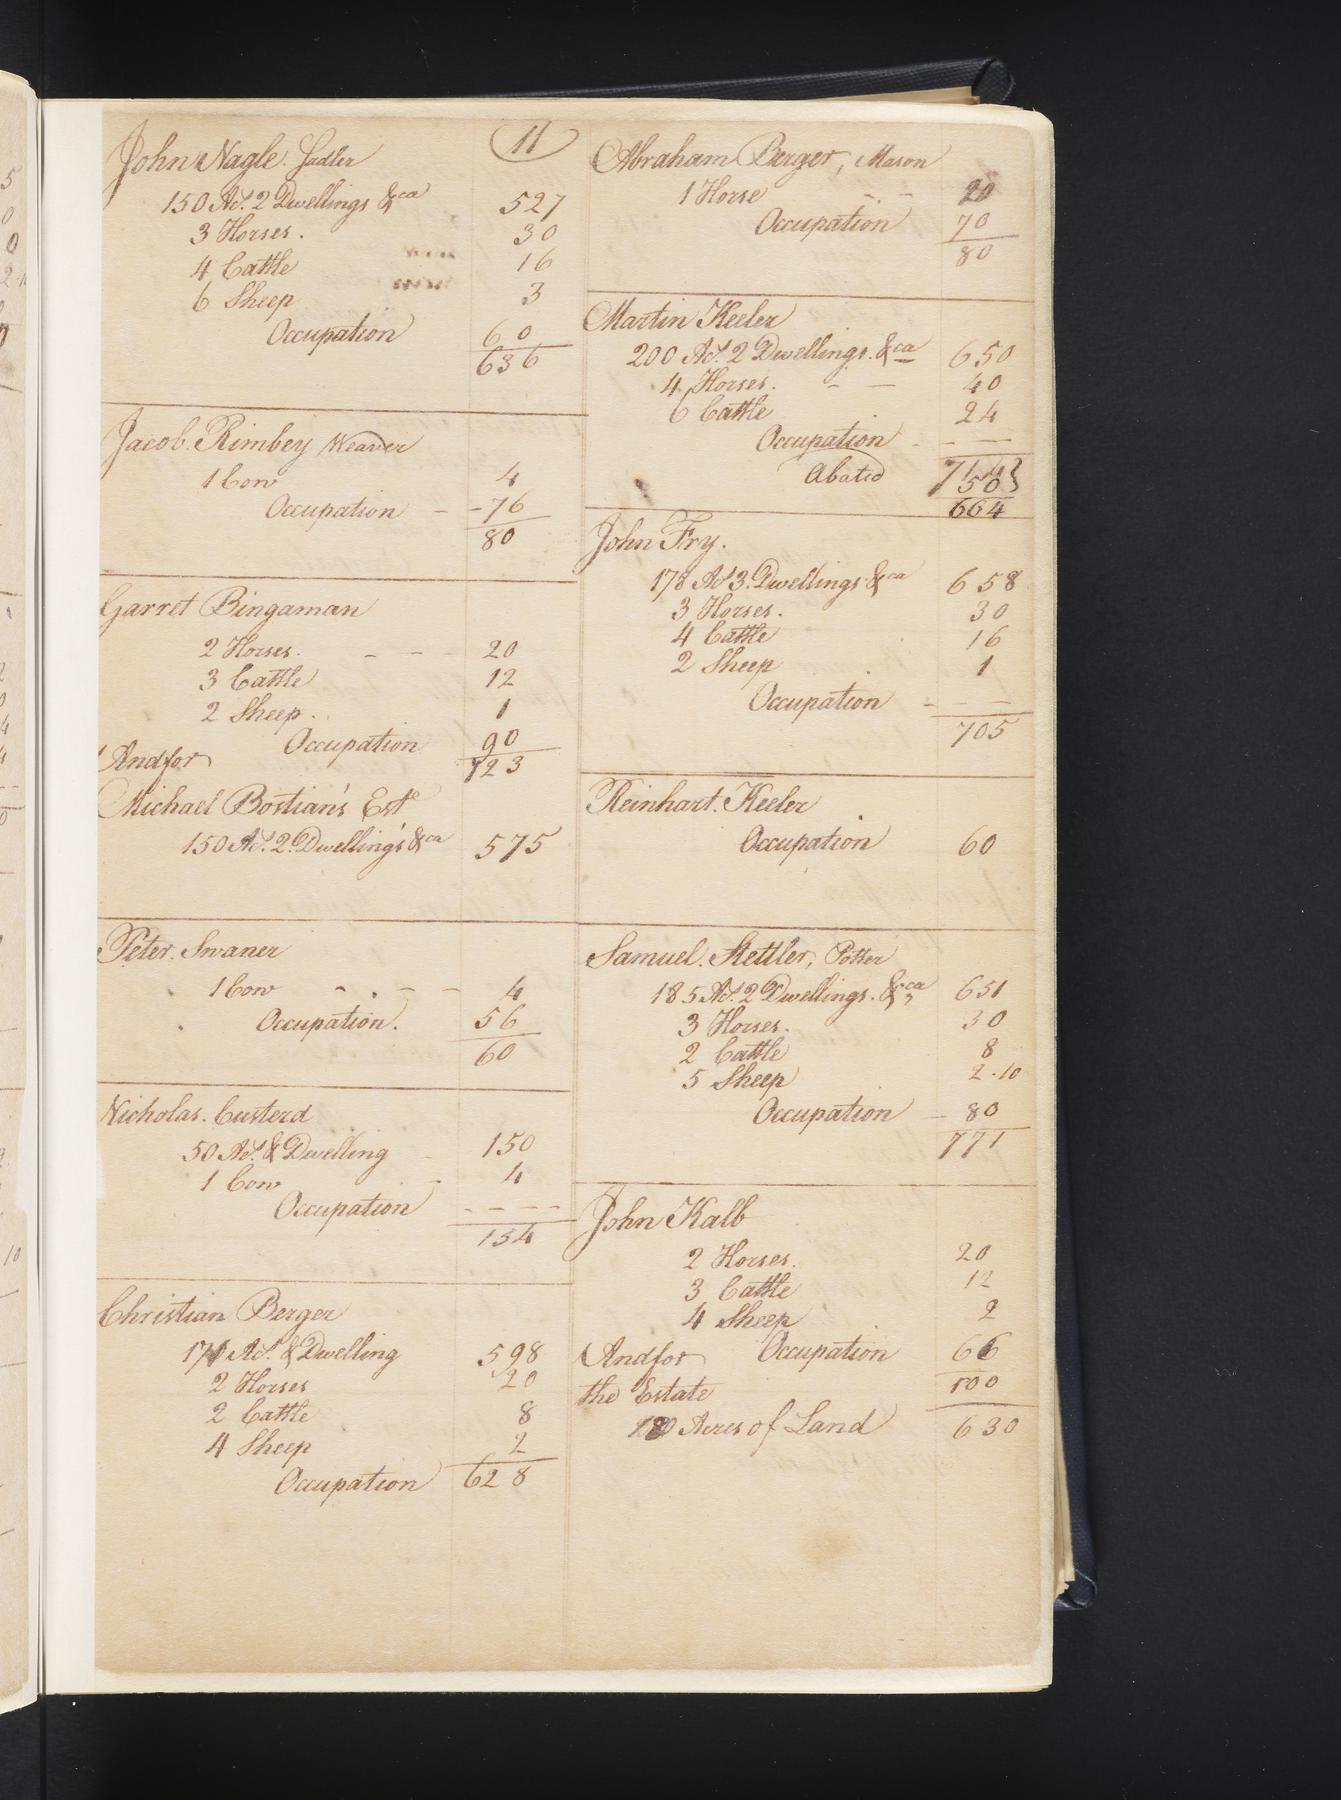 11
John Nagle. Sadler
150 As. 2 Dwellings &ca 527
3 Horses. 30
4 Cattle 16
6 Sheep 3
Occupation 60
636
Jacob. Rimbey Weaver
1 Cow 4
Occupation - - 76
80
Garret Bingaman
2 Horses. - - - 20
3 Cattle 12
2 Sheep. 1
Occupation 90
And for 123
Michael Bostian's Este
150 As. 2 Dwelling's &ca 575
Peter. Swaner
1 Cow - - - - 4
Occupation. 56
60
Nicholas. Custerd
50 As. & Dwelling - 150
1 Cow - 4
Occupation - - - -
154
Christian Berger
171 As. & Dwelling 598
2 Horses 20
2 Cattle 8
4 Sheep 2
Occupation 628
Abraham Berger, Mason
1 Horse - - 20
Occupation 70
80
Martin Keeler
200 As. 2 Dwellings. &ca 650
4 Horses. - - 40
6 Cattle 24
Occupation - - -
Abated 714
50
664
John Fry.
178 As 3. Dwellings &ca 658
3 Horses. 30
4 Cattle 16
2 Sheep 1
Occupation - - - -
705
Reinhart. Keeler
Occupation 60
Samuel. Stettler, Potter
185 As. 2 Dwellings. &ca 651
3 Horses. 30
2 Cattle 8
5 Sheep 2.10
Occupation - 80
771
John Kalb
2 Horses. 20
3 Cattle 12
4 Sheep 2
And for Occupation 66
the Estate 100
Acres of Land 630